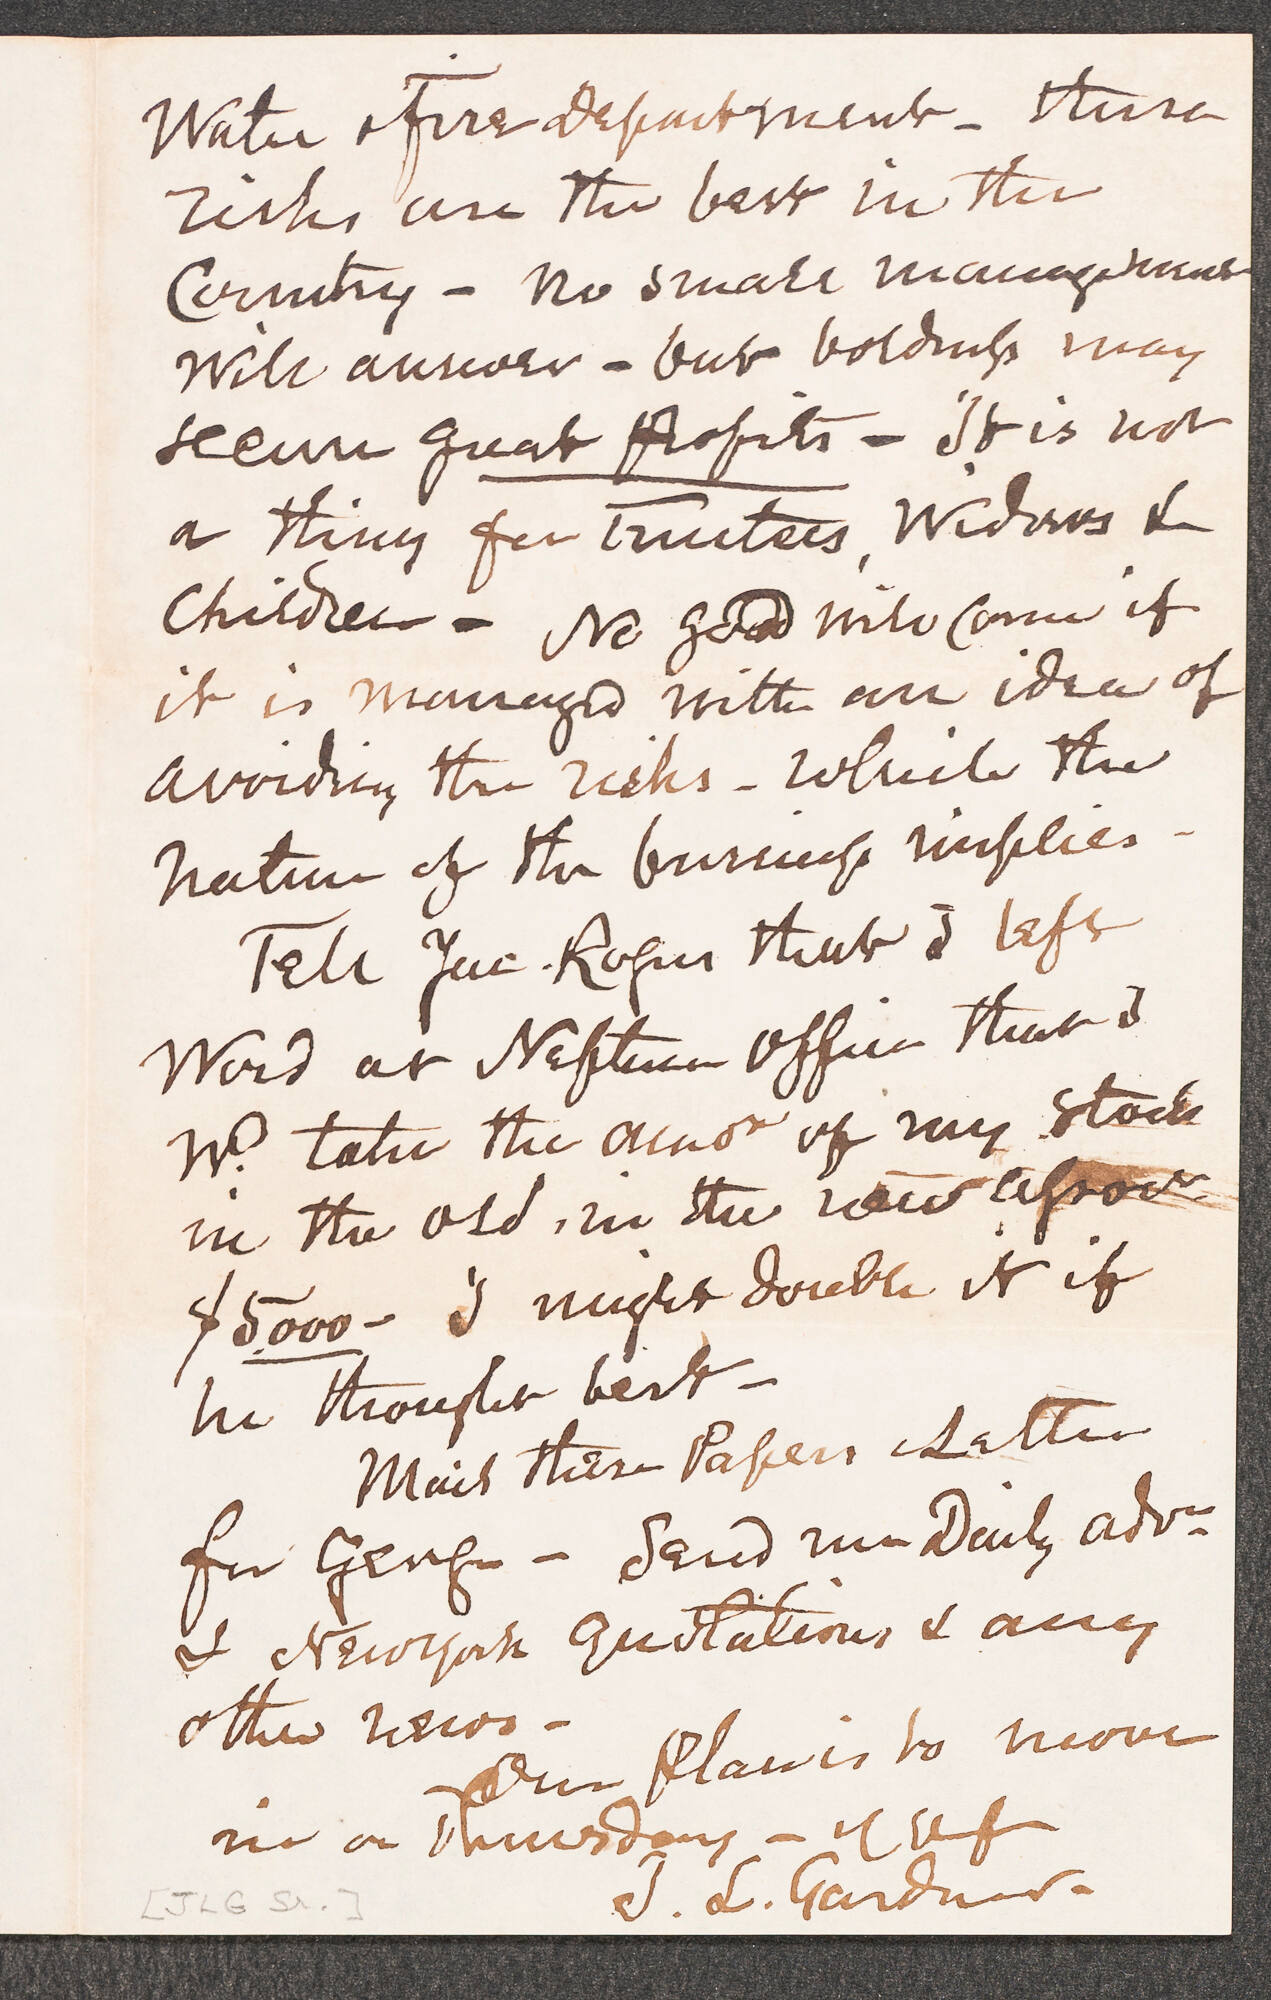 Water & Fire Department - these
risks are the best in the
Country - no small management
will answer - but boldness may
secure great Profits - It is not
a thing for Trustees, Widows &
Children - No good will come if
it is managed with an idea of
avoiding the risks - which the
nature of the business implies -
Tell Jac. Rogers that I left
Word at Neptune Office that I
Wd. take the amot of my Stock
in the old, in the new
$5000 - I might double it if
he thought best -
Mail these Papers & Letter
for George - Send me Daily advr.
& New York Quotations & any
other news -
Our plan is to move
in on Thursday -
J. L. Gardner -
[JLG Sr.]